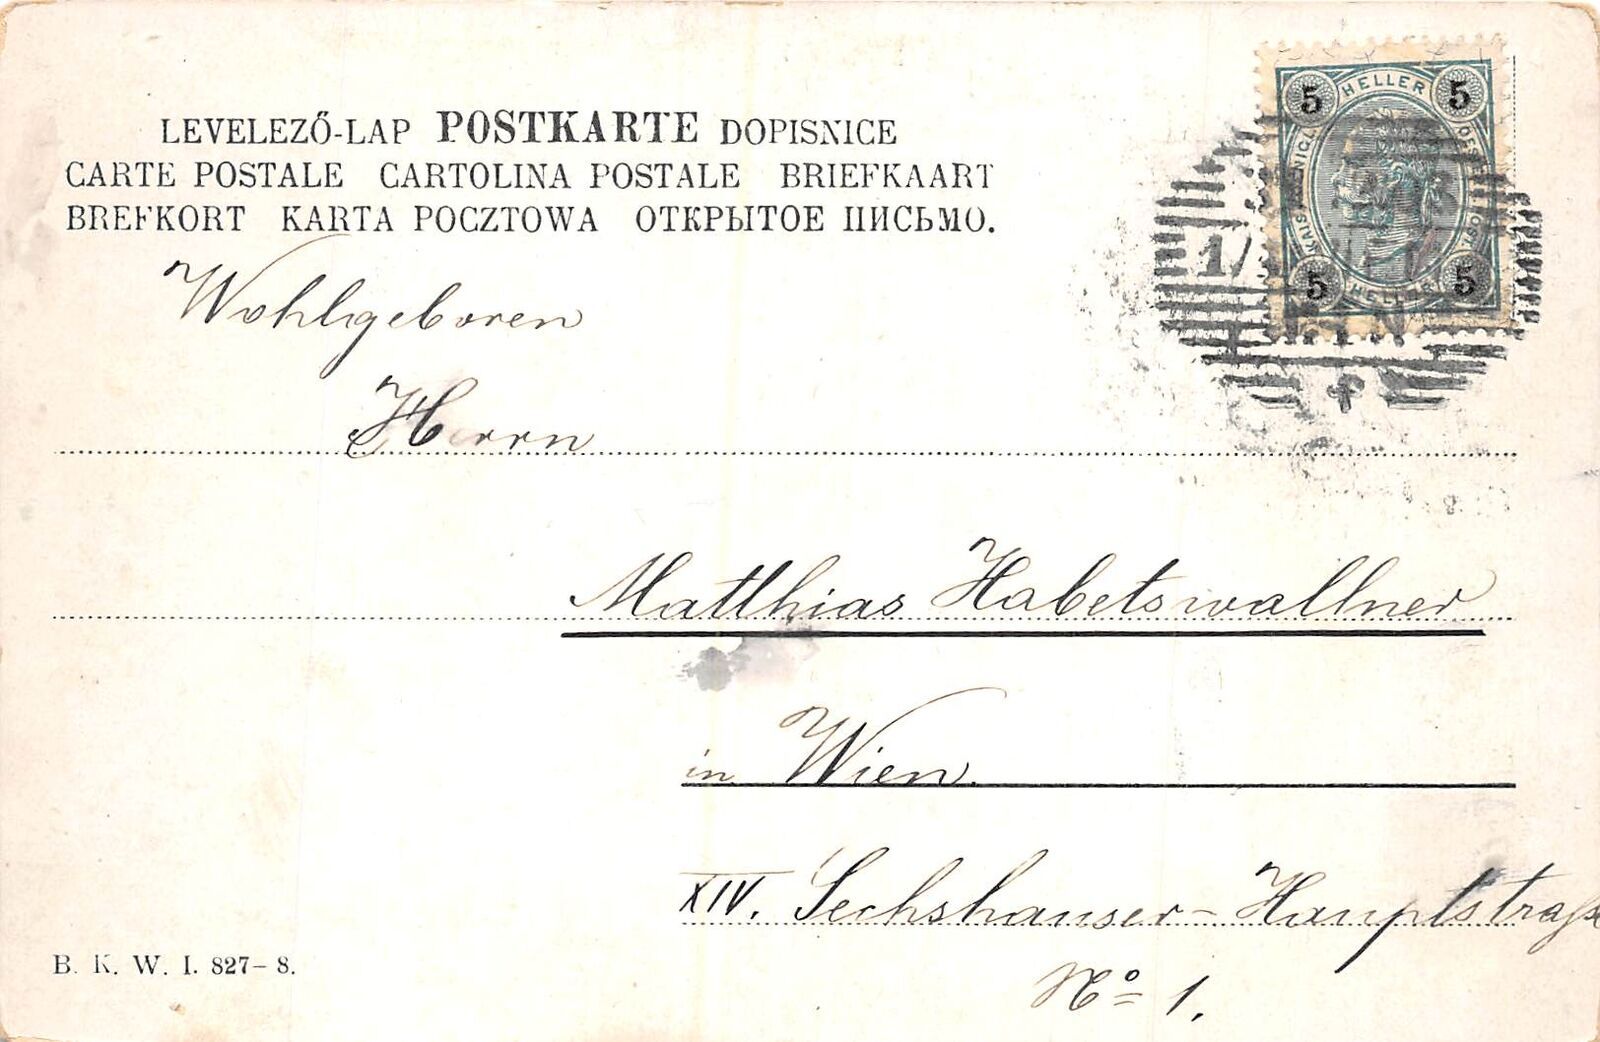 LEVELEZŐ-LAP POSTKARTE DOPISNICE
CARTE POSTALE CARTOLINA POSTALE BRIEFKAART
BREFKORT KARTA POCZTOWA ОТКРЫТОЕ ПИСЬМО.
HELLER
5 5
5 5
HELLER
1/1
WIEN
Wohlgeboren
Herrn
Matthias Habetswallner
in Wien.
XIV. Sechshauser-Hauptstraße
No 1.
B. K. W. I. 827-8.